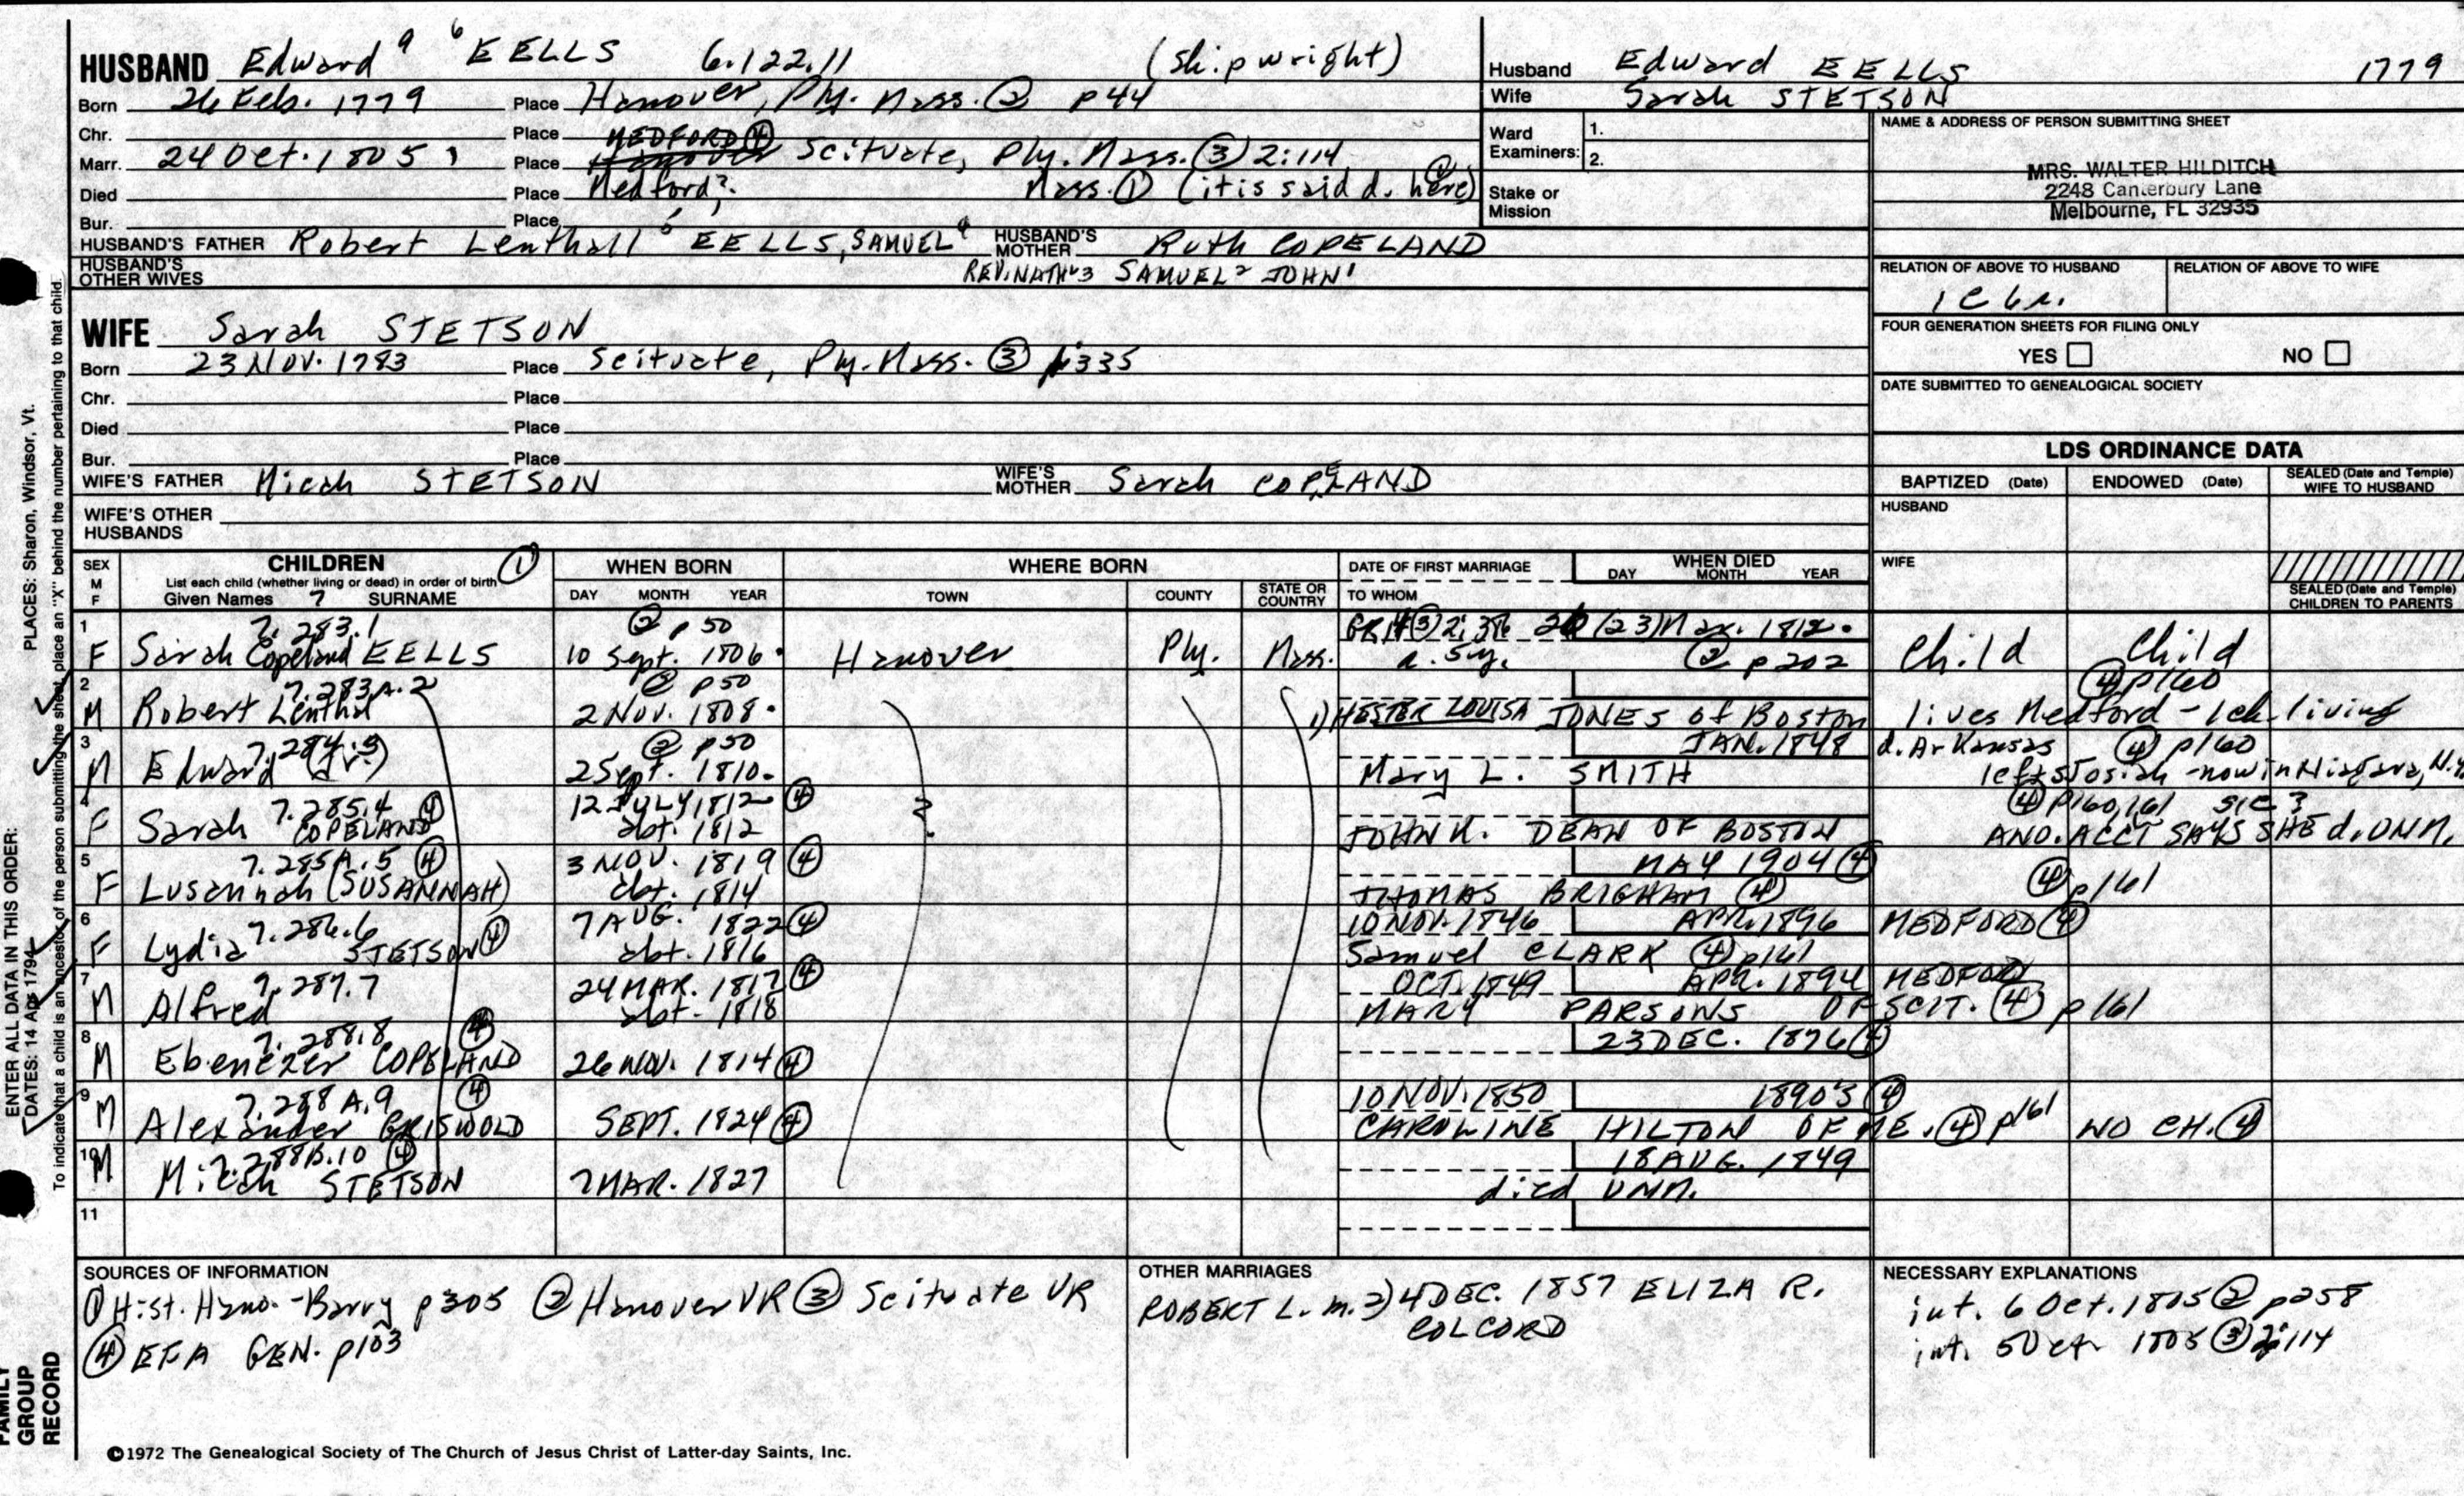 HUSBAND Edward 6 EELLS 6.122.11 (shipwright)
Born 26 Feb. 1779 Place Hanover, Ply. Mass. ② p44
Chr. Place MEDFORD ④
Marr. 24 Oct. 1805 Place Hanover Scituate, Ply. Mass. ③ 2:114
Died Place Medford? Mass. ① (it is said d. here)
Bur. Place
HUSBAND'S FATHER Robert Lenthall 5 EELLS, SAMUEL 4 HUSBAND'S MOTHER Ruth COPELAND
HUSBAND'S OTHER WIVES REV. NATH'L 3 SAMUEL 2 JOHN 1
WIFE Sarah STETSON
Born 23 Nov. 1783 Place Scituate, Ply. Mass. ③ 1:335
Chr. Place
Died Place
Bur. Place
WIFE'S FATHER Micah STETSON WIFE'S MOTHER Sarah COPELAND
WIFE'S OTHER HUSBANDS
Husband Edward EELLS 1779
Wife Sarah STETSON
Ward Examiners: 1.
2.
Stake or Mission
NAME & ADDRESS OF PERSON SUBMITTING SHEET
MRS. WALTER HILDITCH
2248 Canterbury Lane
Melbourne, FL 32935
RELATION OF ABOVE TO HUSBAND RELATION OF ABOVE TO WIFE
1c 6r.
FOUR GENERATION SHEETS FOR FILING ONLY
YES NO
DATE SUBMITTED TO GENEALOGICAL SOCIETY
LDS ORDINANCE DATA
BAPTIZED (Date) ENDOWED (Date) SEALED (Date and Temple) WIFE TO HUSBAND
HUSBAND
WIFE
SEALED (Date and Temple) CHILDREN TO PARENTS
SEX M F
CHILDREN ①
List each child (whether living or dead) in order of birth
Given Names 7 SURNAME
WHEN BORN
DAY MONTH YEAR
WHERE BORN
TOWN COUNTY STATE OR COUNTRY
DATE OF FIRST MARRIAGE
TO WHOM
WHEN DIED
DAY MONTH YEAR
1 7.283.1 ② p50 (23) Mar. 1812.
F Sarah Copeland EELLS 10 Sept. 1806. Hanover Ply. Mass. a. 5y. ② p202 Child Child
2 7.283A.2 ② p50 ④ p160
M Robert Lenthal 2 Nov. 1808. 1) HESTER LOUISA JONES of Boston lives Medford - 1 ch. living
3 7.284.3 ② p50 JAN. 1848 d. Arkansas ④ p160
M Edward (Jr.) 2 Sept. 1810. Mary L. SMITH left Josiah - now in Niagara, N.Y.
4 7.285.4 ④ 12 JULY 1812 ④ ④ p160,161 sic?
F Sarah COPELAND abt. 1812 JOHN K. DEAN OF BOSTON ANO. ACCT SAYS SHE d. UNM.
5 7.285A.5 ④ 3 NOV. 1819 ④ MAY 1904 ④
F Lusannah (SUSANNAH) abt. 1814 THOMAS BRIGHAM ④ ④ p161
6 7.286.6 7 AUG. 1822 ④ 10 NOV. 1846 APR. 1896 MEDFORD ④
F Lydia STETSON ④ abt. 1816 Samuel CLARK ④ p161
7 7.287.7 24 MAR. 1817 ④ OCT. 1849 APR. 1894 MEDFORD
M Alfred abt. 1818 MARY PARSONS OF SCIT. ④ p161
8 7.288.8 ④ 23 DEC. 1876 ④
M Ebenezer COPELAND 26 NOV. 1814 ④
9 7.288A.9 ④ 10 NOV. 1850 1890'S ④
M Alexander GRISWOLD SEPT. 1824 ④ CAROLINE HILTON OF ME. ④ p161 NO CH. ④
10 7.288B.10 ④ 18 AUG. 1849
M Micah STETSON 7 MAR. 1827 died UNM.
11
SOURCES OF INFORMATION
① Hist. Hano. - Barry p305 ② Hanover VR ③ Scituate VR
④ EFA GEN. p103
OTHER MARRIAGES
ROBERT L. m. 2) 4 DEC. 1857 ELIZA R. COLCORD
NECESSARY EXPLANATIONS
int. 6 Oct. 1805 ② p258
int. 5 Oct. 1805 ③ 2:114
©1972 The Genealogical Society of The Church of Jesus Christ of Latter-day Saints, Inc.
FAMILY GROUP RECORD
ENTER ALL DATA IN THIS ORDER:
DATES: 14 Apr 1794 PLACES: Sharon, Windsor, Vt.
To indicate that a child is an ancestor of the person submitting the sheet, place an "X" behind the number pertaining to that child.